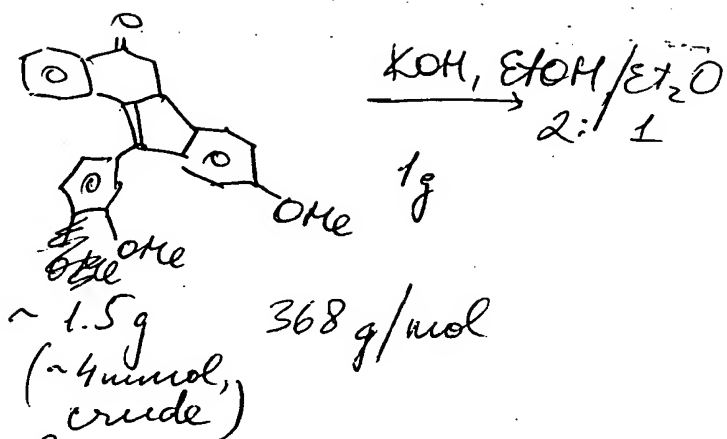 O
KOH, EtOH/Et₂O
2:1
1g
OMe
OMe
~ 1.5g 368 g/mol
(~4mmol,
crude)